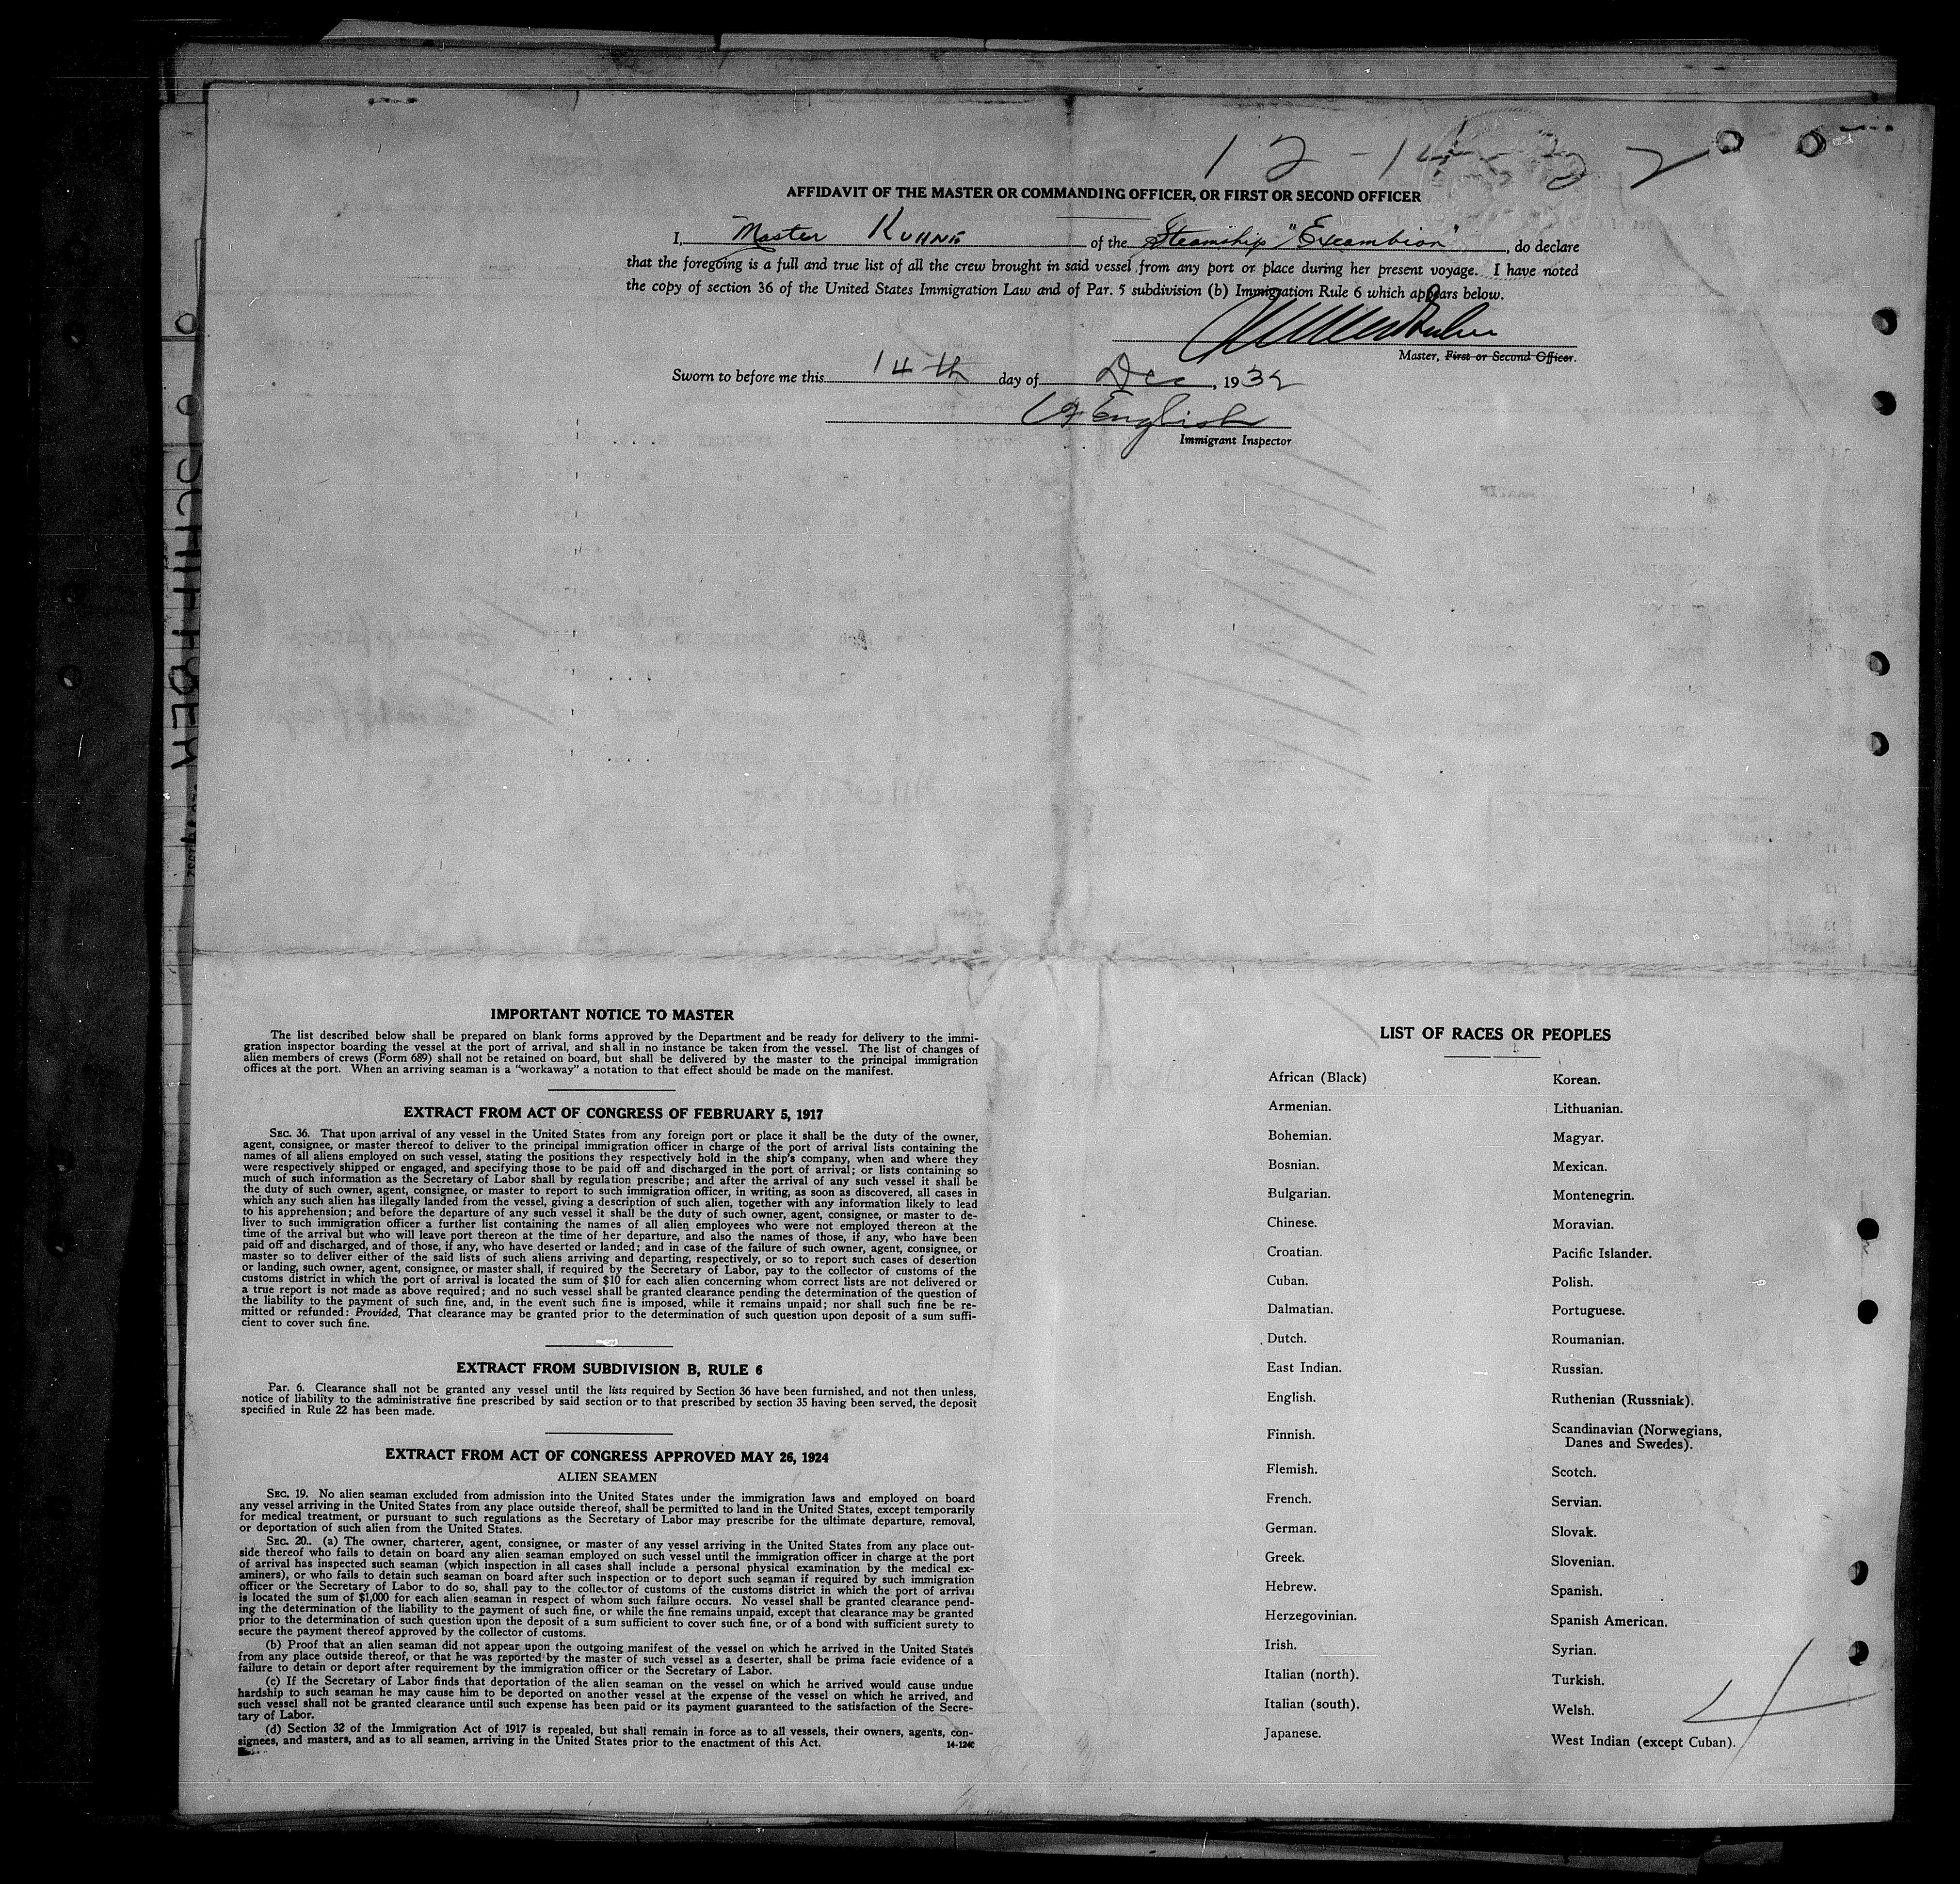 12-14-32
AFFIDAVIT OF THE MASTER OR COMMANDING OFFICER, OR FIRST OR SECOND OFFICER
I, Master Kuhne of the Steamship "Excambion", do declare
that the foregoing is a full and true list of all the crew brought in said vessel from any port or place during her present voyage. I have noted
the copy of section 36 of the United States Immigration Law and of Par. 5 subdivision (b) Immigration Rule 6 which appears below.
Master, First or Second Officer.
Sworn to before me this 14th day of Dec, 1932
English
Immigrant Inspector
IMPORTANT NOTICE TO MASTER
The list described below shall be prepared on blank forms approved by the Department and be ready for delivery to the immi-
gration inspector boarding the vessel at the port of arrival, and shall in no instance be taken from the vessel. The list of changes of
alien members of crews (Form 689) shall not be retained on board, but shall be delivered by the master to the principal immigration
offices at the port. When an arriving seaman is a "workaway" a notation to that effect should be made on the manifest.
EXTRACT FROM ACT OF CONGRESS OF FEBRUARY 5, 1917
SEC. 36. That upon arrival of any vessel in the United States from any foreign port or place it shall be the duty of the owner,
agent, consignee, or master thereof to deliver to the principal immigration officer in charge of the port of arrival lists containing the
names of all aliens employed on such vessel, stating the positions they respectively hold in the ship's company, when and where they
were respectively shipped or engaged, and specifying those to be paid off and discharged in the port of arrival; or lists containing so
much of such information as the Secretary of Labor shall by regulation prescribe; and after the arrival of any such vessel it shall be
the duty of such owner, agent, consignee, or master to report to such immigration officer, in writing, as soon as discovered, all cases in
which any such alien has illegally landed from the vessel, giving a description of such alien, together with any information likely to lead
to his apprehension; and before the departure of any such vessel it shall be the duty of such owner, agent, consignee, or master to de-
liver to such immigration officer a further list containing the names of all alien employees who were not employed thereon at the
time of the arrival but who will leave port thereon at the time of her departure, and also the names of those, if any, who have been
paid off and discharged, and of those, if any, who have deserted or landed; and in case of the failure of such owner, agent, consignee, or
master so to deliver either of the said lists of such aliens arriving and departing, respectively, or so to report such cases of desertion
or landing, such owner, agent, consignee, or master shall, if required by the Secretary of Labor, pay to the collector of customs of the
customs district in which the port of arrival is located the sum of $10 for each alien concerning whom correct lists are not delivered or
a true report is not made as above required; and no such vessel shall be granted clearance pending the determination of the question of
the liability to the payment of such fine, and, in the event such fine is imposed, while it remains unpaid; nor shall such fine be re-
mitted or refunded: Provided, That clearance may be granted prior to the determination of such question upon deposit of a sum suffi-
cient to cover such fine.
EXTRACT FROM SUBDIVISION B, RULE 6
Par. 6. Clearance shall not be granted any vessel until the lists required by Section 36 have been furnished, and not then unless,
notice of liability to the administrative fine prescribed by said section or to that prescribed by section 35 having been served, the deposit
specified in Rule 22 has been made.
EXTRACT FROM ACT OF CONGRESS APPROVED MAY 26, 1924
ALIEN SEAMEN
SEC. 19. No alien seaman excluded from admission into the United States under the immigration laws and employed on board
any vessel arriving in the United States from any place outside thereof, shall be permitted to land in the United States, except temporarily
for medical treatment, or pursuant to such regulations as the Secretary of Labor may prescribe for the ultimate departure, removal,
or deportation of such alien from the United States.
SEC. 20. (a) The owner, charterer, agent, consignee, or master of any vessel arriving in the United States from any place out-
side thereof who fails to detain on board any alien seaman employed on such vessel until the immigration officer in charge at the port
of arrival has inspected such seaman (which inspection in all cases shall include a personal physical examination by the medical ex-
aminers), or who fails to detain such seaman on board after such inspection or to deport such seaman if required by such immigration
officer or the Secretary of Labor to do so, shall pay to the collector of customs of the customs district in which the port of arrival
is located the sum of $1,000 for each alien seaman in respect of whom such failure occurs. No vessel shall be granted clearance pend-
ing the determination of the liability to the payment of such fine, or while the fine remains unpaid, except that clearance may be granted
prior to the determination of such question upon the deposit of a sum sufficient to cover such fine, or of a bond with sufficient surety to
secure the payment thereof approved by the collector of customs.
(b) Proof that an alien seaman did not appear upon the outgoing manifest of the vessel on which he arrived in the United States
from any place outside thereof, or that he was reported by the master of such vessel as a deserter, shall be prima facie evidence of a
failure to detain or deport after requirement by the immigration officer or the Secretary of Labor.
(c) If the Secretary of Labor finds that deportation of the alien seaman on the vessel on which he arrived would cause undue
hardship to such seaman he may cause him to be deported on another vessel at the expense of the vessel on which he arrived, and
such vessel shall not be granted clearance until such expense has been paid or its payment guaranteed to the satisfaction of the Secre-
tary of Labor.
(d) Section 32 of the Immigration Act of 1917 is repealed, but shall remain in force as to all vessels, their owners, agents, con-
signees, and masters, and as to all seamen, arriving in the United States prior to the enactment of this Act.
14-1240
LIST OF RACES OR PEOPLES
African (Black)
Armenian.
Bohemian.
Bosnian.
Bulgarian.
Chinese.
Croatian.
Cuban.
Dalmatian.
Dutch.
East Indian.
English.
Finnish.
Flemish.
French.
German.
Greek.
Hebrew.
Herzegovinian.
Irish.
Italian (north).
Italian (south).
Japanese.
Korean.
Lithuanian.
Magyar.
Mexican.
Montenegrin.
Moravian.
Pacific Islander.
Polish.
Portuguese.
Roumanian.
Russian.
Ruthenian (Russniak).
Scandinavian (Norwegians,
Danes and Swedes).
Scotch.
Servian.
Slovak.
Slovenian.
Spanish.
Spanish American.
Syrian.
Turkish.
Welsh.
West Indian (except Cuban).
4